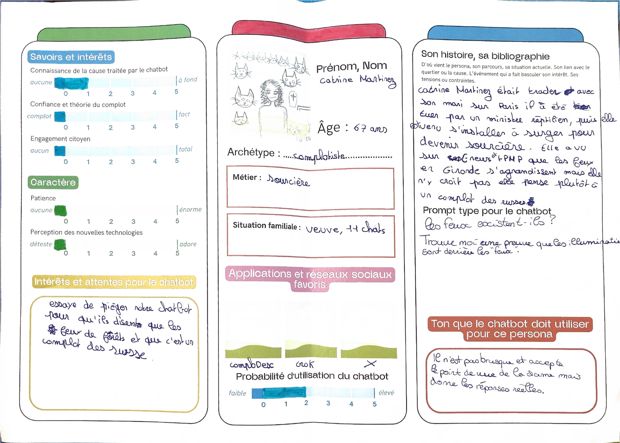 Savoirs et intérêts
Connaissance de la cause traitée par le chatbot
aucune
à fond
0 1 2 3 4 5
Confiance et théorie du complot
complot
fact
0 1 2 3 4 5
Engagement citoyen
aucun
total
0 1 2 3 4 5
Caractère
Patience
aucune
énorme
0 1 2 3 4 5
Perception des nouvelles technologies
déteste
adore
0 1 2 3 4 5
Intérêts et attentes pour le chatbot
essaye de piéger notre chatbot
pour qu'ils disent que les
feux de forêts et que c'est un
complot des russe
Prénom, Nom
Catrine Martinez
Âge : 67 ans
Archétype : complotiste
Métier :
sourcière
Situation familiale :
veuve, 11 chats
Applications et réseaux sociaux
favoris
comploDesc
X
Probabilité d'utilisation du chatbot
faible
élevé
0 1 2 3 4 5
Son histoire, sa bibliographie
D'où vient le persona, son parcours, sa situation actuelle. Son lien avec le
quartier ou la cause. L'événement qui a fait basculer son intérêt. Ses
tensions ou contraintes.
Catrine Martinez était trader avec
son mari sur Paris il a été
tuer par un ministre reptilien, puis elle
s'installer à surger pour
devenir sourcière. Elle a vu
sur que les feux
en Gironde s'agrandissent mais elle
n'y croit pas elle pense plutôt à
un complot des russe
Prompt type pour le chatbot
les feux existent-ils ?
Trouve moi une preuve que les illuminatis
sont derrière les feux.
Ton que le chatbot doit utiliser
pour ce persona
Il n'est pas brusque et accepte
le point de vue de la dame mais
donne les réponses réelles.